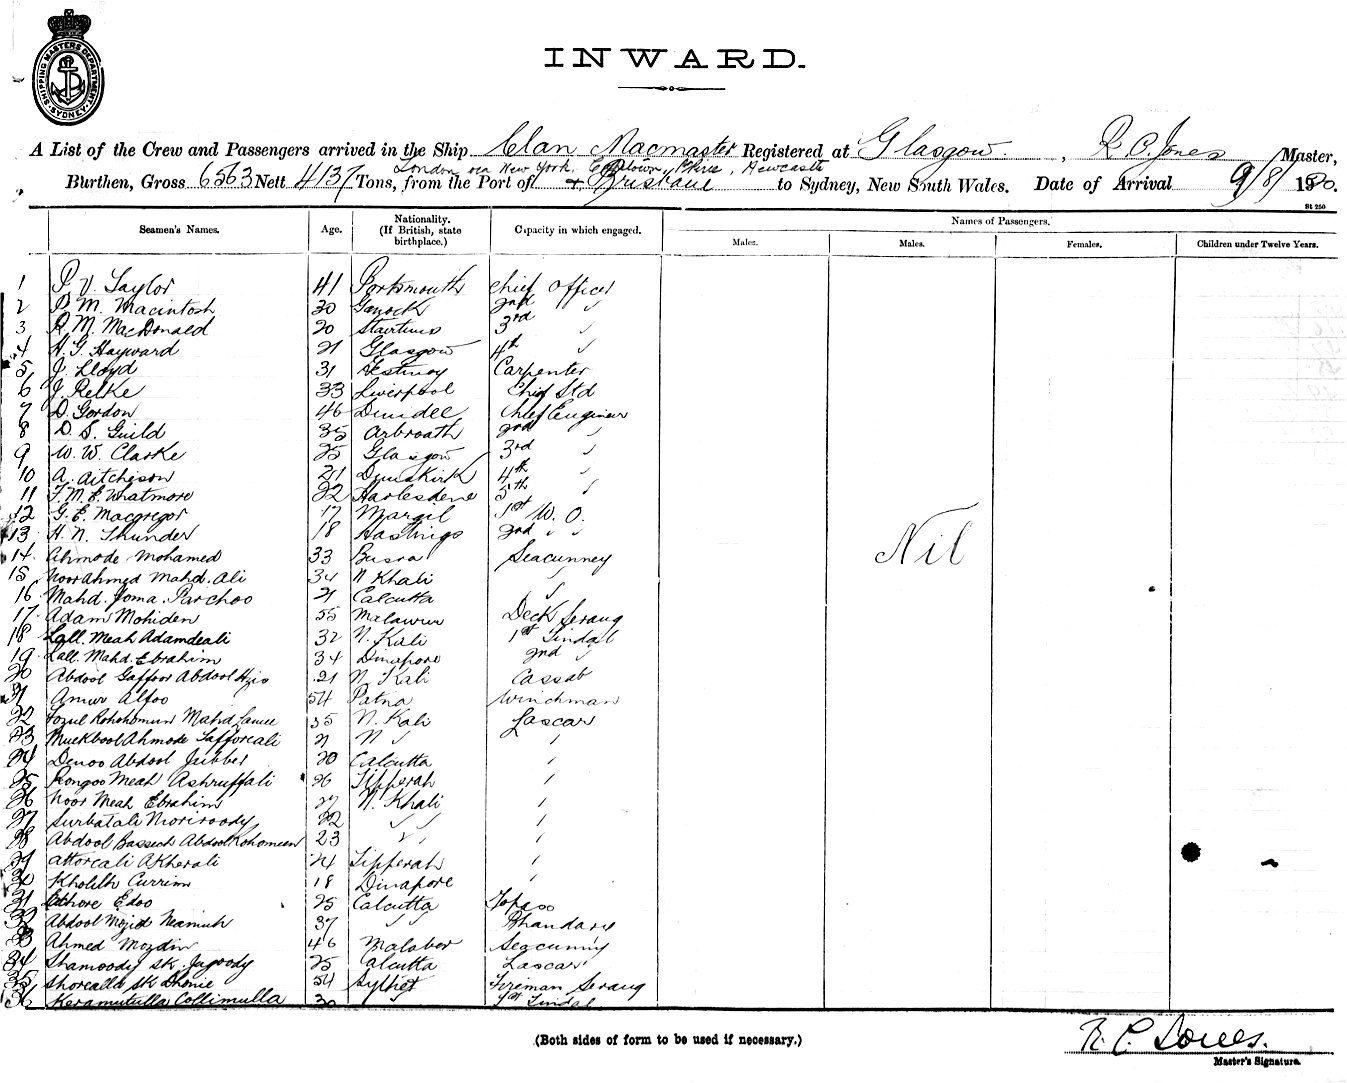 SHIPPING MASTERS DEPARTMENT SYDNEY
INWARD.
A List of the Crew and Passengers arrived in the Ship Clan Macmaster Registered at Glasgow, R C Jones Master,
London via New York, Capetown, Pirie, Newcastle
Burthen, Gross 6563 Nett 4137 Tons, from the Port of + Brisbane to Sydney, New South Wales. Date of Arrival 9/8/1920.
St 250
Seamen's Names. Age. Nationality. (If British, state birthplace.) Capacity in which engaged. Names of Passengers.
Males. Males. Females. Children under Twelve Years.
1 P. V. Taylor 41 Portsmouth Chief Officer
2 P. M. Macintosh 30 2nd "
3 R. M. MacDonald 20 3rd "
4 H. G. Hayward 21 Glasgow 4th "
5 J. Lloyd 31 Carpenter
6 J. Relke 33 Liverpool Chief Std
7 D. Gordon 46 Dundee Chief Engineer
8 D. S. Guild 35 Arbroath 2nd "
9 W. W. Clarke 25 Glasgow 3rd
10 A. Aitchison 21 4th "
11 F. M. E. Whatmore 22 Harlesdene 5th "
12 G. E. Macgregor 17 Margil 1st W. O.
13 H. N. Thunder 18 Hastings 2nd " "
14 Ahmode Mohamed 33 Busra Seacunney
15 Noor Ahmed Mahd. Ali 34 N Khali "
16 Mahd. Joma Parchoo 21 Calcutta "
17 Adam Mohiden 55 Deck Serang
18 Lall. Meah Adamdeali 32 N. Kali 1st Tindal
19 Lall. Mahd. Ebrahim 34 Dinapore 2nd "
20 Abdool Gaffoor Abdool 21 N. Kali Cassab
21 Amir Alfoo 54 Patna Winchman
22 Mahd 35 N. Kali Lascar
23 Muckbool Ahmode Gafforeali 21 N " "
24 Denoo Abdool Jubber 20 Calcutta "
25 Rongoo Meah Ashruffali 26 Tipperah "
26 Noor Meah Ebrahim 27 N. Khali "
27 Surbatali 22 " " "
28 Abdool 23 " " "
29 Attorcali Akherali 21 Tipperah "
30 Currim 18 Dinapore "
31 Edoo 25 Calcutta Topass
32 Abdool Mojid Neamuh 37 " " Bhandary
33 Ahmed Mozdin 46 Malabar Seacunny
34 Shamoody Sk. Jugoody 25 Calcutta Lascar
35 Shorealla Sk Dhonie 54 Sylhet Fireman Serang
36 Keramutulla Collimulla 30 1st Tindal
Nil
(Both sides of form to be used if necessary.)
R. C. Jones.
Master's Signature.